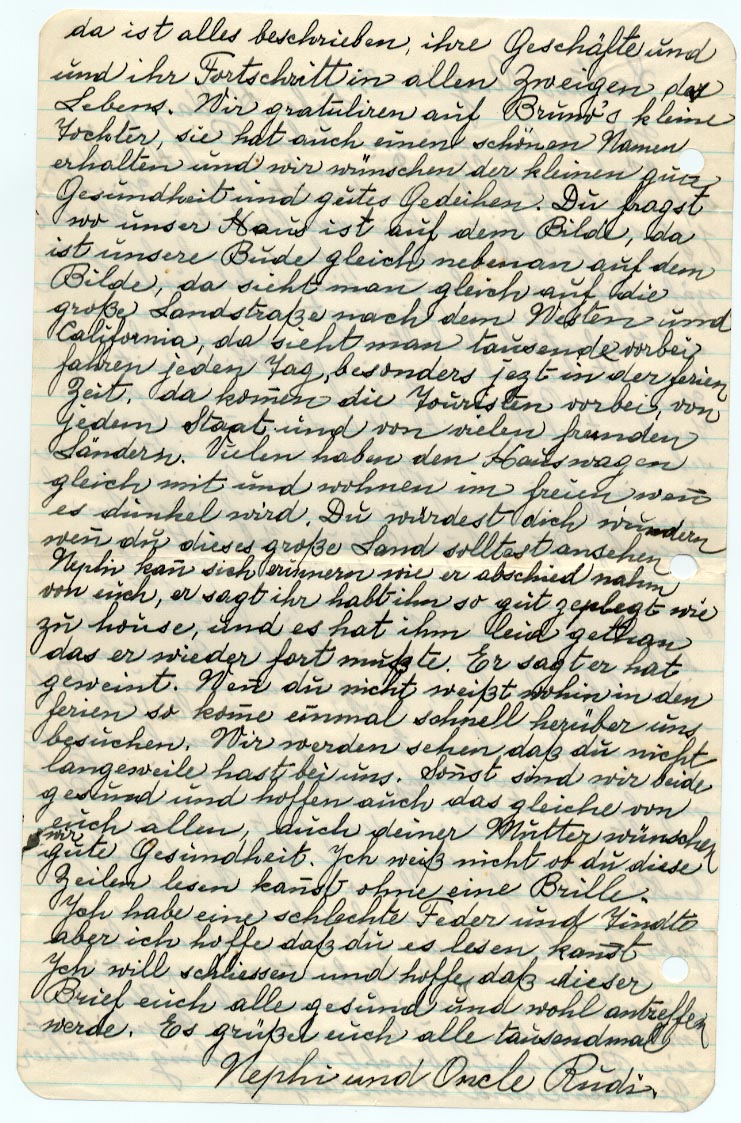 da ist alles beschrieben, ihre Geschäfte und
und ihr Fortschritt in allen Zweigen des
Lebens. Wir gratuliren auf Bruno's kleine
Tochter, sie hat auch einen schönen Namen
erhalten und wir wünschen der kleinen gute
Gesundheit und gutes Gedeihen. Du fragst
wo unser Haus ist auf dem Bilde, da
ist unsere Bude gleich nebenan auf dem
Bilde, da sieht man gleich auf die
große Landstraße nach dem Westen und
California, da sieht man tausende vorbei
fahren jeden Tag, besonders jezt in der ferien
Zeit. da kom̄en die Touristen vorbei, von
jedem Staat und von vielen fremden
Ländern. Vielen haben den Hauswagen
gleich mit und wohnen im freien wen̄
es dunkel wird. Du würdest dich wundern
wen̄ du dieses große Land solltest ansehen
Nephi kan̄ sich erinnern wie er abschied nahm
von euch, er sagt ihr habt ihn so gut gepflegt wie
zu house, und es hat ihm leid gethan
das er wieder fort mußte. Er sagt er hat
geweint. Wen̄ du nicht weißt wohin in den
ferien so kom̄e einmal schnell herüber uns
besuchen. Wir werden sehen daß du nicht
langeweile hast bei uns. Son̄st sind wir beide
gesund und hoffen auch das gleiche von
euch allen, auch deiner Mutter wünschen
wir
gute Gesundheit. Ich weiß nicht ob du diese
Zeilen lesen kan̄st ohne eine Brille.
Ich habe eine schlechte Feder und Tindte
aber ich hoffe daß du es lesen kan̄st
Ich will schliessen und hoffe daß dieser
Brief euch alle gesund und wohl antreffen
werde. Es grüßen euch alle tausendmal
Nephi und Oncle Rudi.